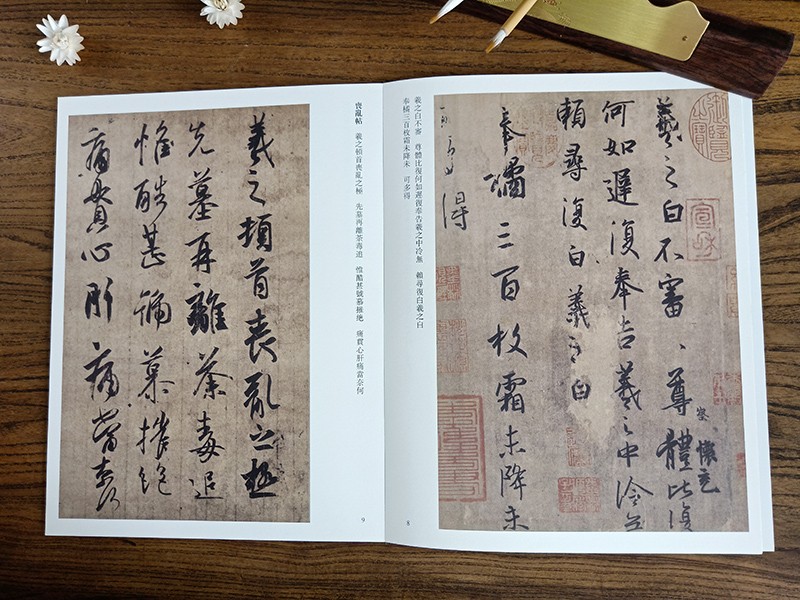 羲之白不審、尊體比復
察
懷充
何如遲復奉告羲之中冷無
賴尋復白羲之白
奉橘三百枚霜未降未
可多得
宣和
羲之白不審 尊體比復何如遲復奉告羲之中冷無 賴尋復白羲之白
奉橘三百枚霜未降未 可多得
8
喪亂帖 羲之頓首喪亂之極 先墓再離荼毒追 惟酷甚號慕摧绝 痛貫心肝痛當奈何
9
羲之頓首喪亂之極
先墓再離荼毒追
惟酷甚號慕摧絕
痛貫心肝痛當奈